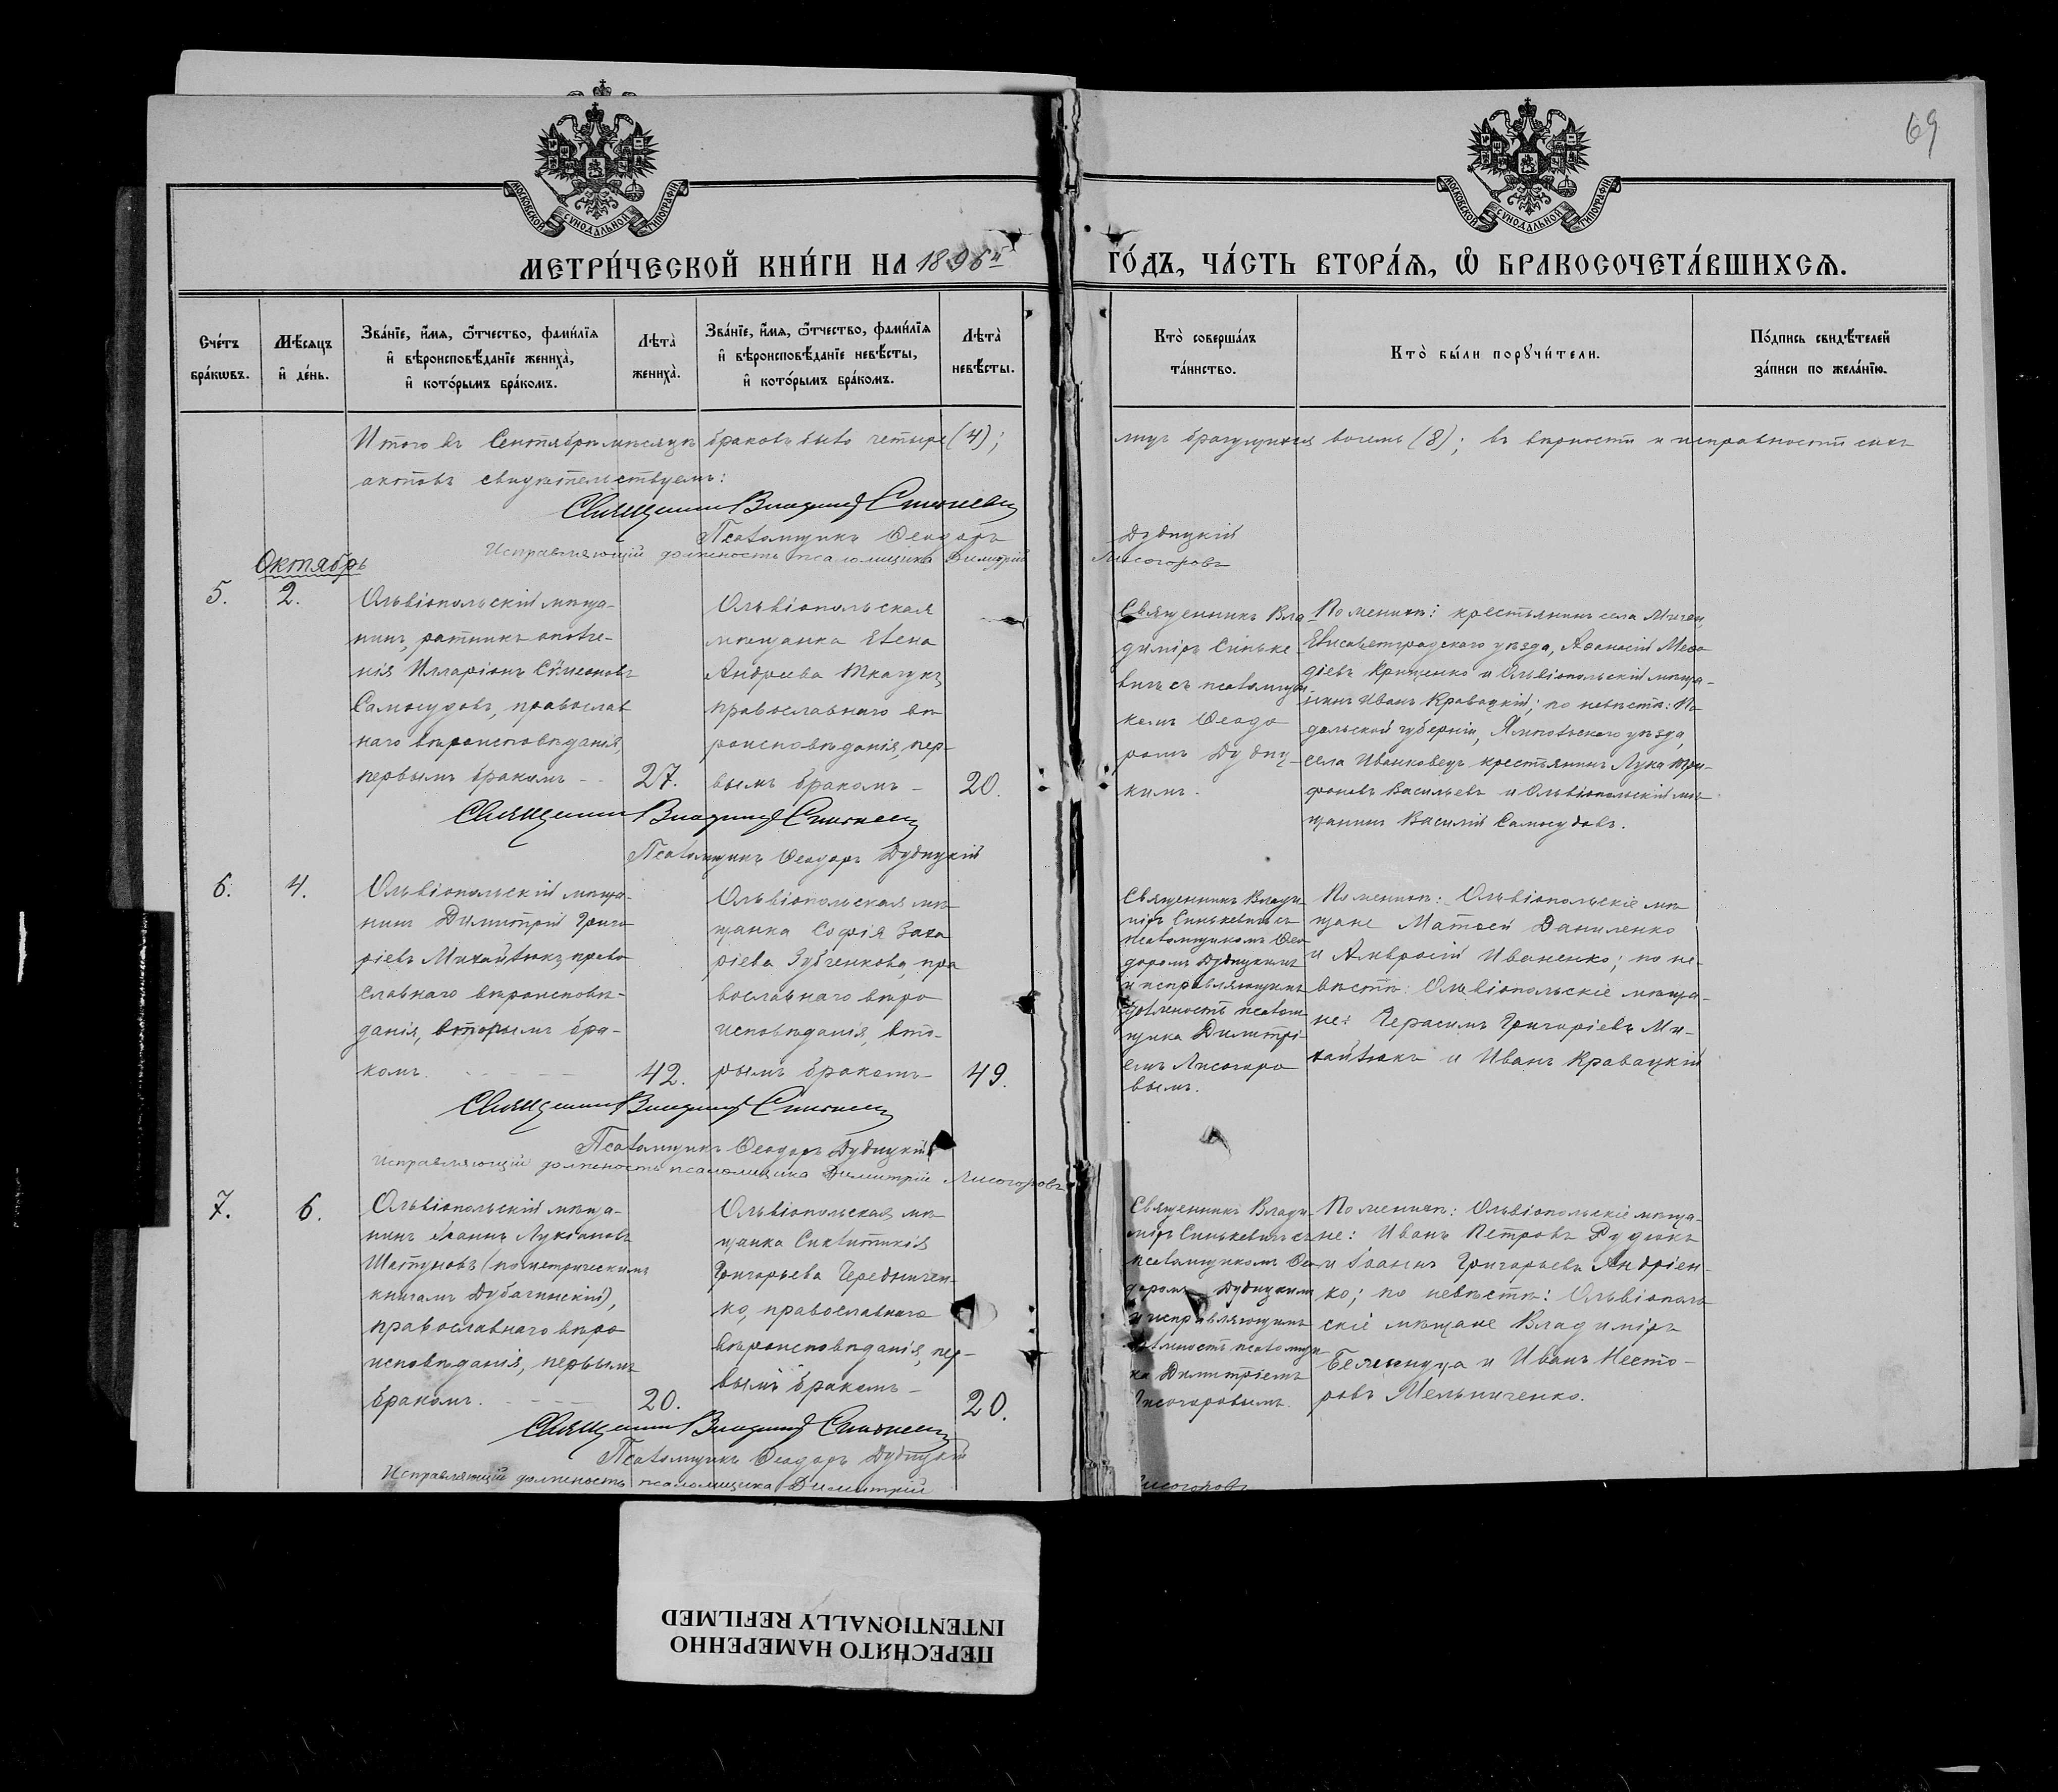 69
МОСКОВСКОЙ СѴНОДАЛЬНОЙ ТИПОГРАФІИ
МОСКОВСКОЙ СѴНОДАЛЬНОЙ ТИПОГРАФІИ
МЕТРИ́ЧЕСКОЙ КНИ́ГИ НА 1896й ГО́ДЪ, ЧА́СТЬ ВТОРА́Ѧ, Ѽ БРАКОСОЧЕТА́ВШИХСѦ.
Сче́тъ бра́кѡвъ.
Мѣ́сѧцъ и҆ де́нь.
Зва́нїе, и҆́мѧ, ѻ҆́тчество, фами́лїѧ
и҆ вѣроисповѣ́данїе жениха̀,
и҆ кото́рымъ бра́комъ.
Лѣта̀ жениха̀.
Зва́нїе, и҆́мѧ, ѻ҆́тчество, фами́лїѧ
и҆ вѣроисповѣ́данїе невѣ́сты,
и҆ кото́рымъ бра́комъ.
Лѣта̀ невѣ́сты.
Кто̀ соверша́лъ та́инство.
Кто̀ бы́ли порꙋчи́тели.
По́дпись свидѣ́телей за́писи по жела́нїю.
Итого въ Сентябрѣ мѣсяцѣ браковъ было четыре (4);
восемь (8); въ вѣрности и исправности сихъ
актовъ свидѣтельствуемъ:
Священникъ Владиміръ Синькевичъ
Псаломщикъ Ѳеодоръ Дубицкій
Исправляющій должность псаломщика Димитрій Лисогоровъ
Октябрь
5.
2.
Ольвіопольскій мѣща-
нинъ, ратникъ ополче-
нія Илларіонъ Сѵмеоновъ
Самосудовъ, православ
наго вѣроисповѣданія,
первымъ бракомъ - -
27.
Ольвіопольская
мѣщанка Елена
Андреева Ткачукъ,
православнаго вѣ
роисповѣданія, пер-
вымъ бракомъ -
20.
Священникъ Вла
диміръ Синьке
вичъ съ псаломщи
комъ Ѳеодо
ромъ Дубиц-
кимъ.
По женихѣ: крестьянинъ села
Елисаветградскаго уѣзда, Аѳанасій Меѳо
діевъ Крищенко и Ольвіопольскій мѣща-
нинъ Иванъ Кравацкій; по невѣстѣ: По
дольской губерніи, Ямпольскаго уѣзда,
села Иванковецъ крестьянинъ Лука Три-
фоновъ Васильевъ и Ольвіопольскій мѣ
щанинъ Василій Самосудовъ.
Священникъ Владиміръ Синькевичъ
Псаломщикъ Ѳеодоръ Дубицкій
6.
4.
Ольвіопольскій мѣща-
нинъ Димитрій Григо
ріевъ Михайлюкъ, право
славнаго вѣроисповѣ-
данія, вторымъ бра-
комъ. - - -
42.
Ольвіопольская мѣ
щанка Софія Заха
ріева Зубченкова, пра
вославнаго вѣро
исповѣданія, вто-
рымъ бракомъ -
49.
Священникъ Влади
міръ Синькевичъ съ
псаломщикомъ Ѳео
доромъ Дубицкимъ
и исправляющимъ
должность псалом
щика Димитрі-
емъ Лисогоро
вымъ.
По женихѣ: Ольвіопольскіе мѣ
щане Матѳей Даниленко
и Амвросій Иваненко; по не-
вѣстѣ: Ольвіопольскіе мѣща-
не: Герасимъ Григоріевъ Ми-
хайлюкъ и Иванъ Кравацкій
Священникъ Владиміръ Синькевичъ
Псаломщикъ Ѳеодоръ Дубицкій
Исправляющій должность псаломщика Димитрій Лисогоровъ
7.
6.
Ольвіопольскій мѣща-
нинъ Іоаннъ Лукіановъ
Шаптуновъ (по метрическимъ
книгамъ Дубачинскій),
православнаго вѣро
исповѣданія, первымъ
бракомъ. - - -
20.
Ольвіопольская мѣ
щанка Синклитикія
Григорьева Чередничен-
ко, православнаго
вѣроисповѣданія, пер-
вымъ бракомъ -
20.
Священникъ Влади-
міръ Синькевичъ съ
псаломщикомъ Ѳео
доромъ Дубицкимъ
и исправляющимъ
должность псаломщи
ка Димитріемъ
Лисогоровымъ.
По женихѣ: Ольвіопольскіе мѣща-
не: Иванъ Петровъ Рудюкъ
и Іоаннъ Григорьевъ Андріен-
ко; по невѣстѣ: Ольвіополь
скіе мѣщане Владиміръ
и Иванъ Несто-
ровъ Мельниченко.
Священникъ Владиміръ Синькевичъ
Псаломщикъ Ѳеодоръ Дубицкій
Исправляющій должность псаломщика Димитрій Лисогоровъ
ПЕРЕСНЯТО НАМЕРЕННО
INTENTIONALLY REFILMED